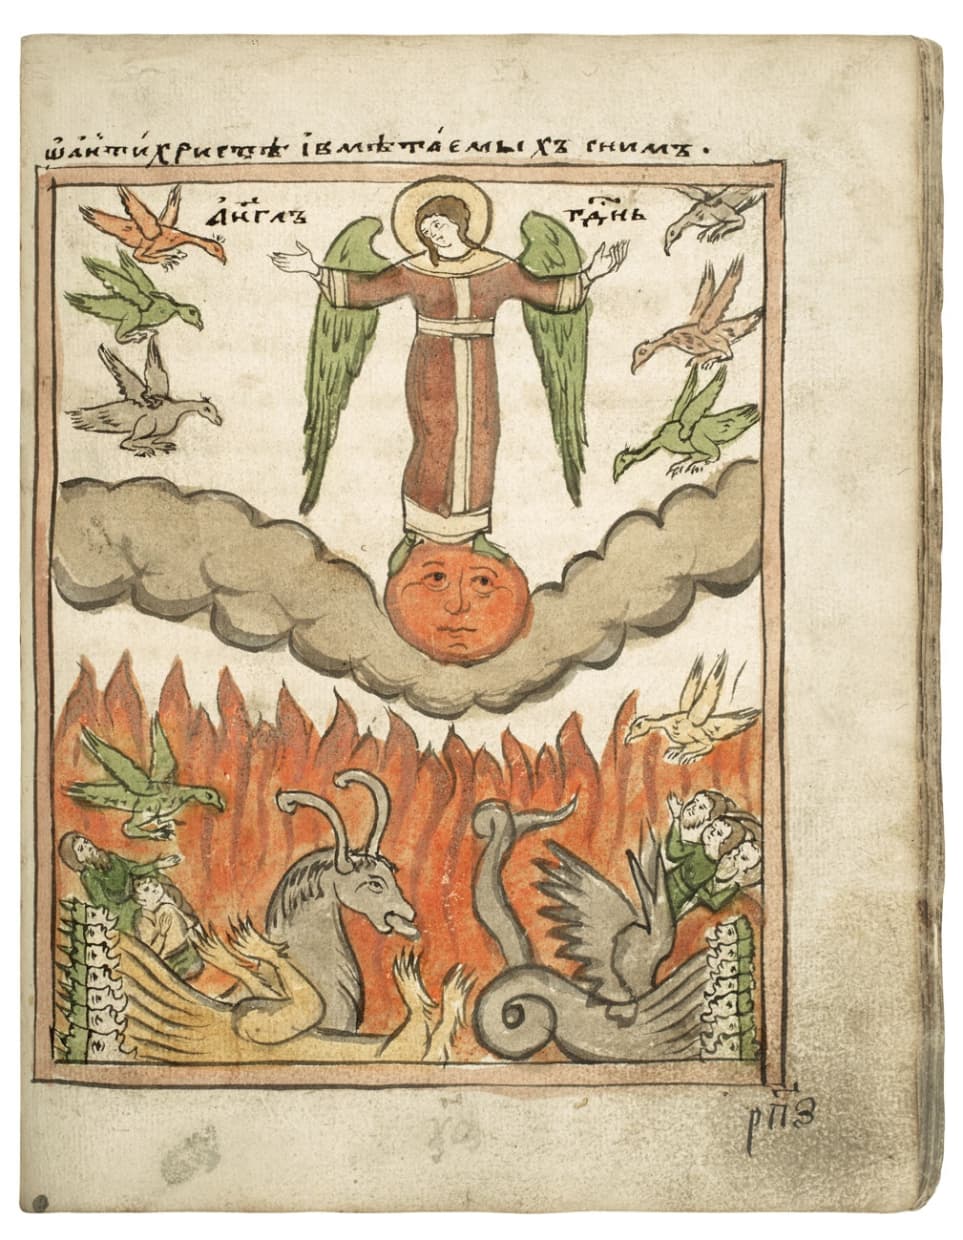 ѡ҆ а҆нти́христѣ і҆ вмѣта́емыхъ сни́мъ .
А҆́нг҃лъ гд҃нь
рп҃з